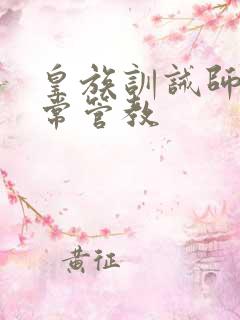 皇族訓誡師
常管教
黄征